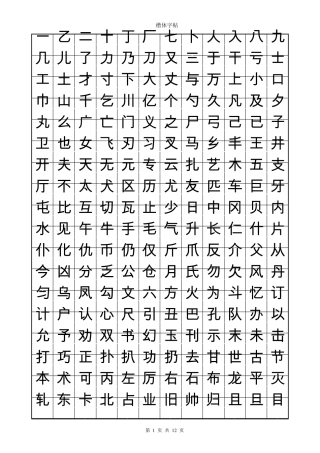 楷体字帖
一乙二十丁厂七卜人入八九
几儿了力乃刀又三于干亏士
工土才寸下大丈与万上小口
巾山千乞川亿个勺久凡及夕
丸么广亡门义之尸弓己已子
卫也女飞刃习叉马乡丰王井
开夫天无元专云扎艺木五支
厅不太犬区历尤友匹车巨牙
屯比互切瓦止少日中冈贝内
水见午牛手毛气升长仁什片
仆化仇币仍仅斤爪反介父从
今凶分乏公仓月氏勿欠风丹
匀乌凤勾文六方火为斗忆订
计户认心尺引丑巴孔队办以
允予劝双书幻玉刊示末未击
打巧正扑扒功扔去甘世古节
本术可丙左厉右石布龙平灭
轧东卡北占业旧帅归且旦目
第 1 页 共 12 页